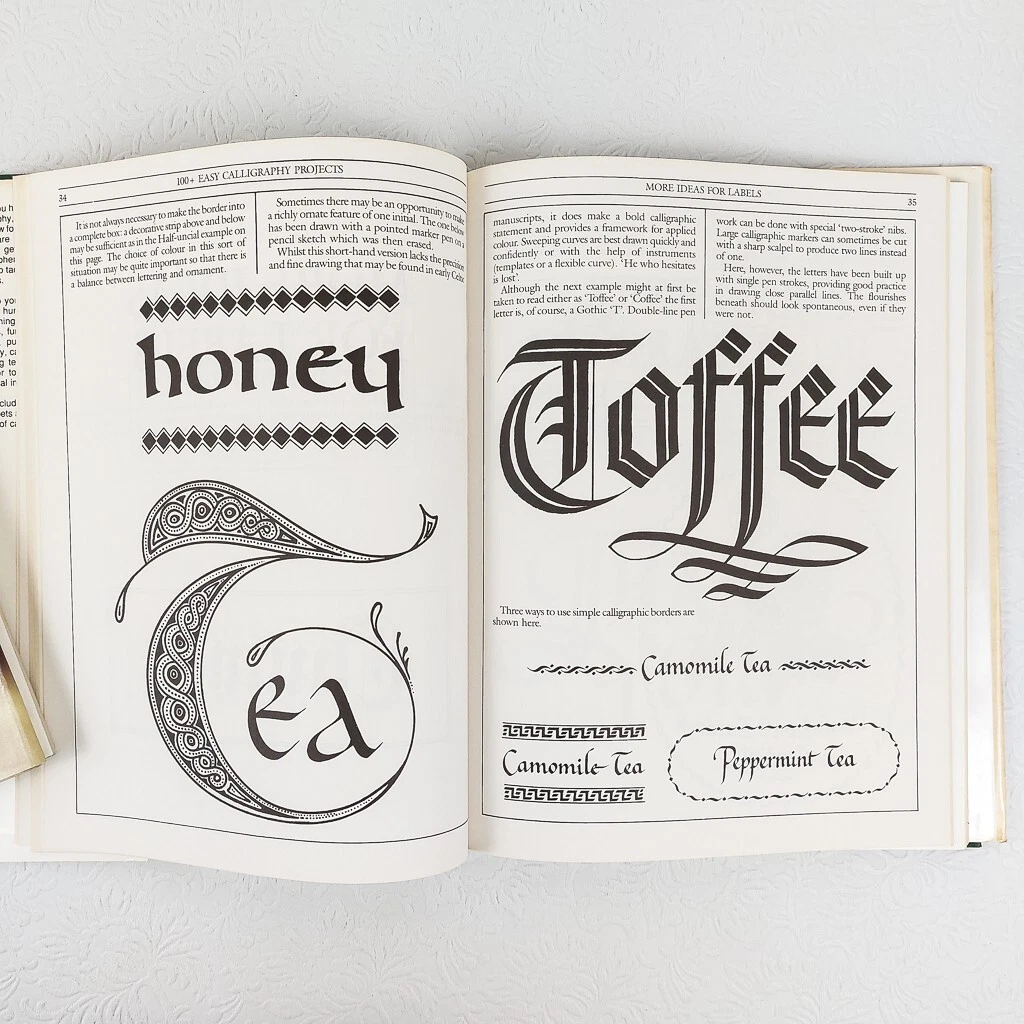 100+ EASY CALLIGRAPHY PROJECTS
34
It is not always necessary to make the border into
a complete box: a decorative strap above and below
may be sufficient as in the Half-uncial example on
this page. The choice of colour in this sort of
situation may be quite important so that there is
a balance between lettering and ornament.
Sometimes there may be an opportunity to make
a richly ornate feature of one initial. The one below
has been drawn with a pointed marker pen on a
pencil sketch which was then erased.
Whilst this short-hand version lacks the precision
and fine drawing that may be found in early Celtic
honey
Tea
MORE IDEAS FOR LABELS
35
manuscripts, it does make a bold calligraphic
statement and provides a framework for applied
colour. Sweeping curves are best drawn quickly and
confidently or with the help of instruments
(templates or a flexible curve). 'He who hesitates
is lost'.
Although the next example might at first be
taken to read either as 'Toffee' or 'Coffee' the first
letter is, of course, a Gothic 'T'. Double-line pen
work can be done with special 'two-stroke' nibs.
Large calligraphic markers can sometimes be cut
with a sharp scalpel to produce two lines instead
of one.
Here, however, the letters have been built up
with single pen strokes, providing good practice
in drawing close parallel lines. The flourishes
beneath should look spontaneous, even if they
were not.
Toffee
Three ways to use simple calligraphic borders are
shown here.
Camomile Tea
Camomile Tea
Peppermint Tea